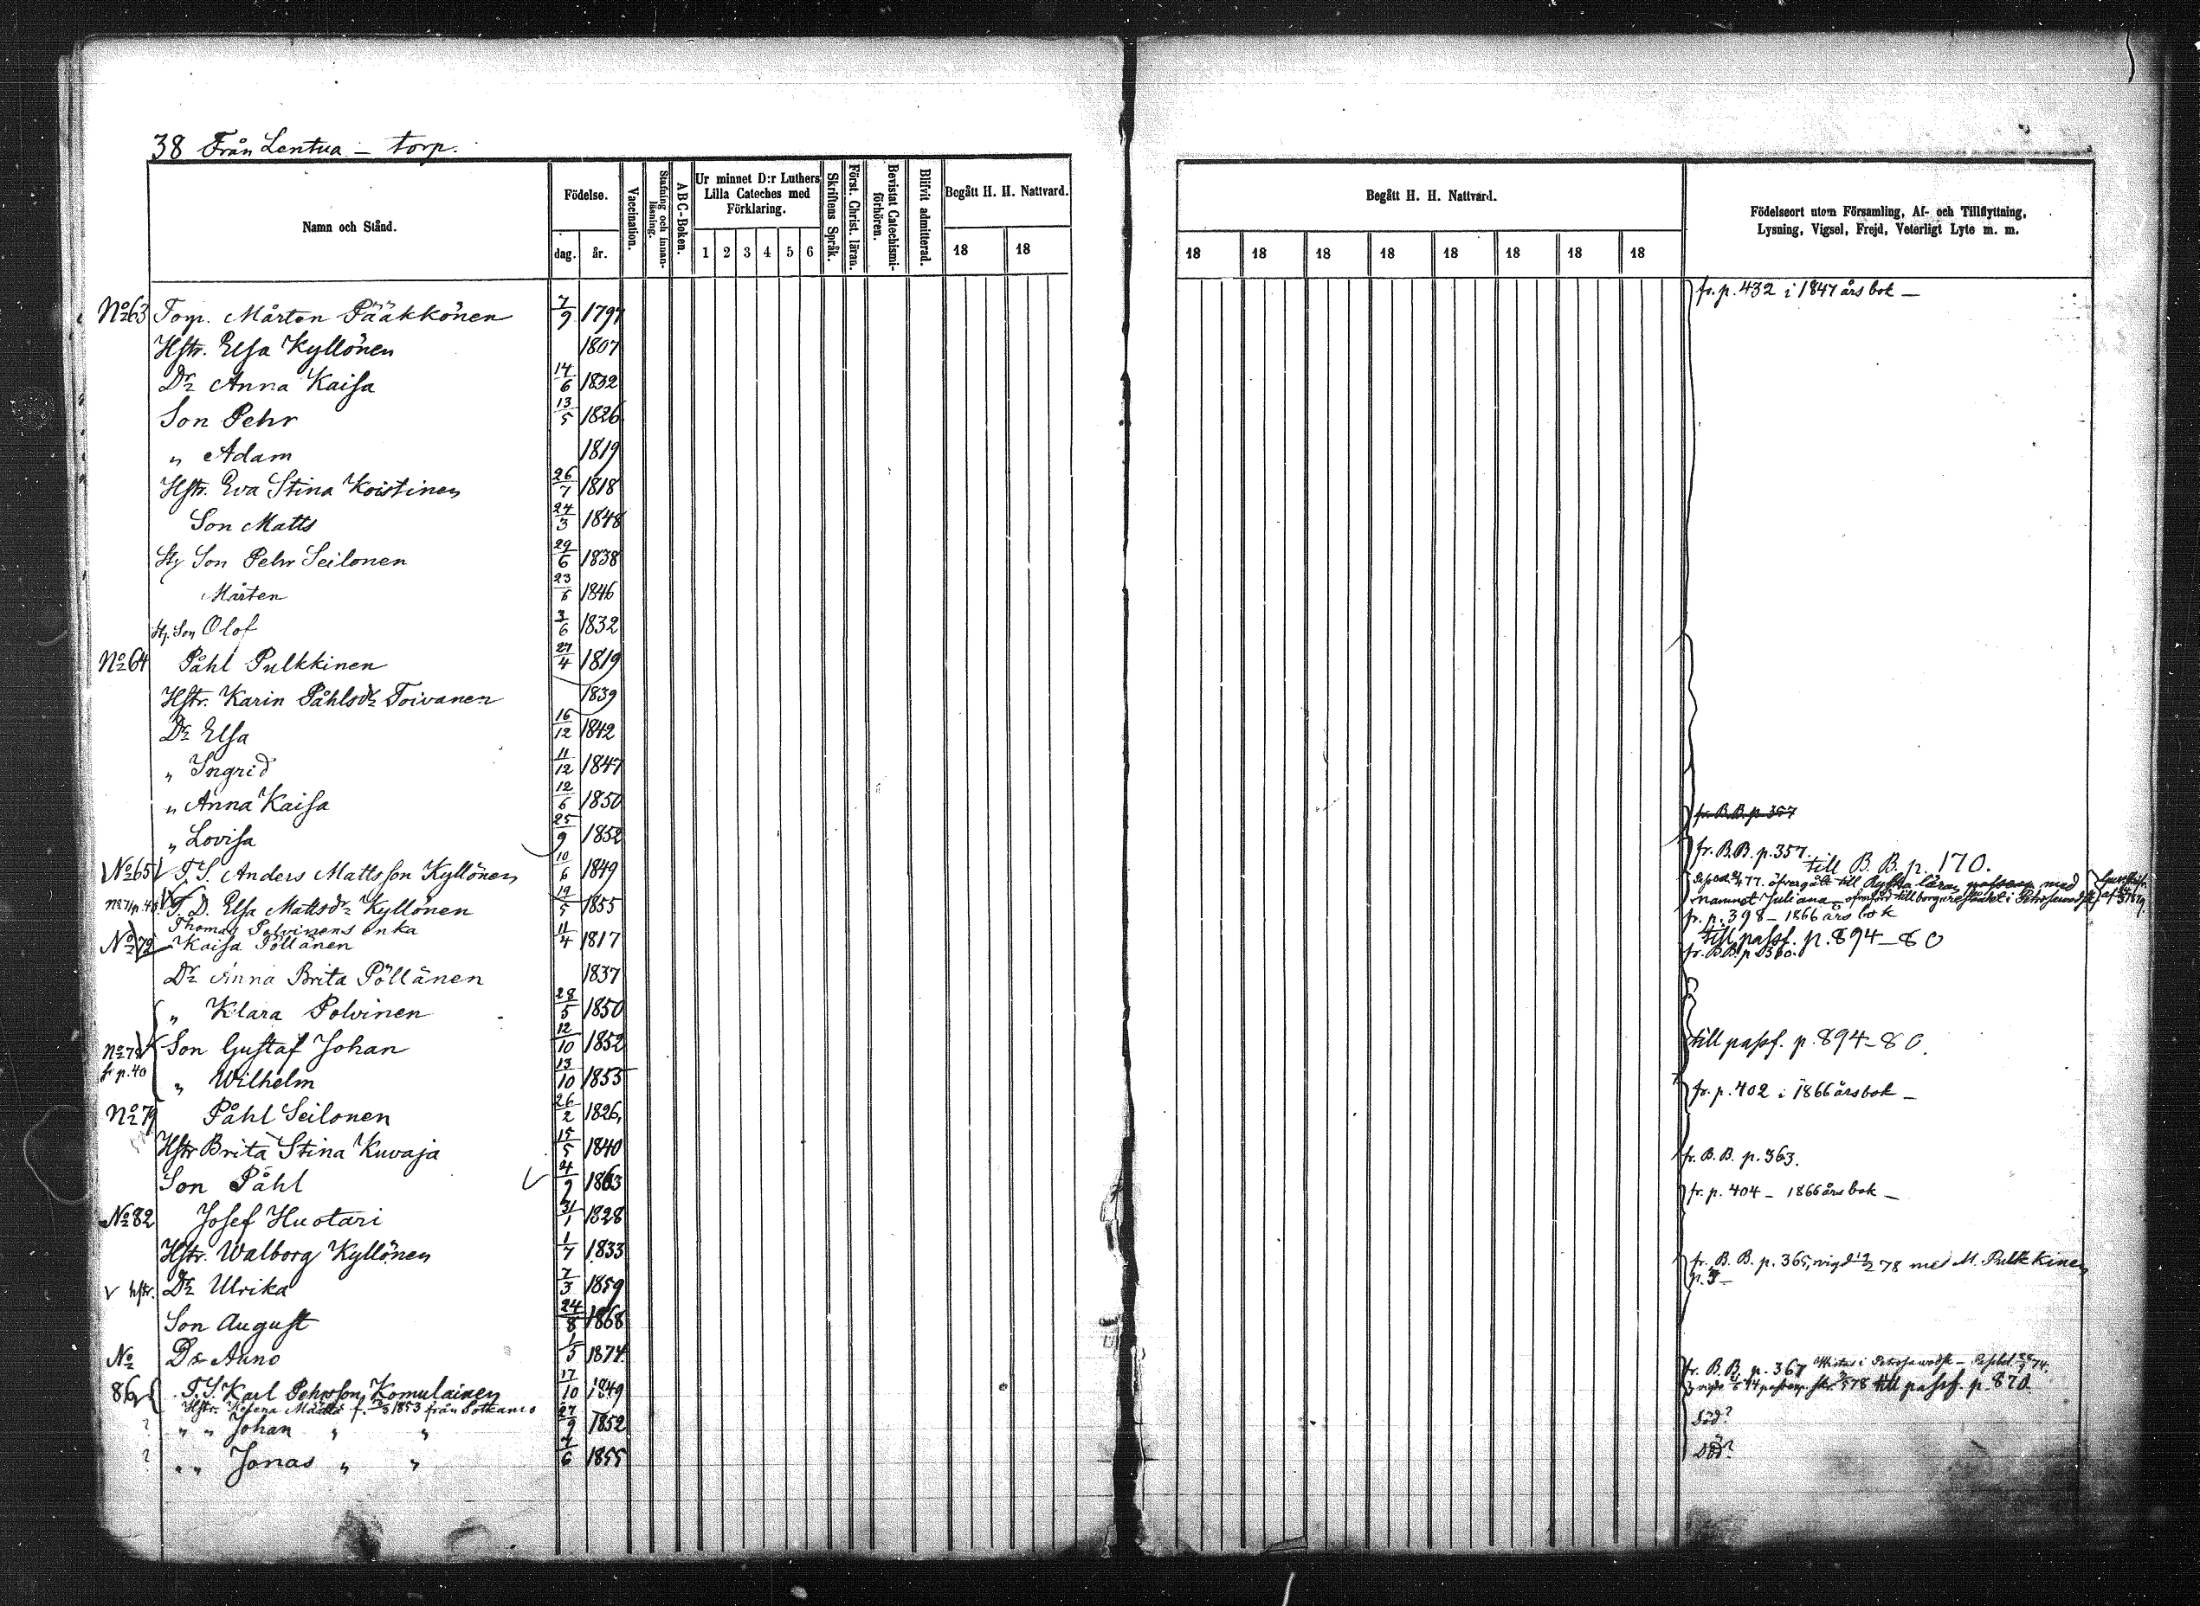 38 Från Lentua – torp.
Namn och Stånd.
Födelse.
dag. år.
Vaccination.
Stafning och innan-läsning.
ABC-Boken.
Ur minnet D:r Luthers Lilla Cateches med Förklaring.
1 2 3 4 5 6
Skriftens Språk.
Först. Christ. läran.
Bevistat Catechismi-förhören.
Blifvit admitterad.
Begått H. H. Nattvard.
18 18
Begått H. H. Nattvard.
18 18 18 18 18 18 18 18
Födelseort utom Församling, Af- och Tillflyttning,
Lysning, Vigsel, Frejd, Veterligt Lyte m. m.
No 63 Torp. Mårten Pääkkönen 7/9 1797 fr. p. 432 i 1847 års bok –
Hstr. Elsa Kyllönen 1807
Dr Anna Kaisa 14/6 1832
Son Pehr 13/5 1826
" Adam 1819
Hstr. Eva Stina Koistinen 26/7 1818
Son Matts 24/3 1848
Son Pehr Seilonen 29/6 1838
Mårten 23/6 1846
Son Olof 3/6 1832
No 64 Påhl Pulkkinen 27/4 1819
Hstr. Karin Påhlsdr Toivanen 1839
Dr Elsa 16/12 1842
" Ingrid 11/12 1847
" Anna Kaisa 12/6 1850
fr. B.B. p. 357
" Lovisa 25/9 1852
fr. B.B. p. 357.
No 65 T. S. Anders Mattsson Kyllönen 10/6 1849 till B. B. p. 170.
77. öfvergått till Ryska läran med
T. D. Elsa Mattsdr Kyllönen 19/5 1855 namnet Juliana
fr. p. 398 – 1866 års bok
Thomas Polvinens enka
No 72 Kaisa Pöllänen 11/4 1817 till passf. p. 894–80
fr. B.B. p. 360.
Dr Anna Brita Pöllänen 1837
" Klara Polvinen 28/5 1850
Son Gustaf Johan 12/10 1852 till passf. p. 894–80.
fr p. 40
" Wilhelm 13/10 1853
fr. p. 402 i 1866 års bok –
No 79 Påhl Seilonen 26/2 1826,
Hstr Brita Stina Kuvaja 15/5 1840 fr. B. B. p. 363.
Son Påhl 4/9 1863
fr. p. 404 – 1866 års bok –
No 82 Josef Huotari 31/1 1828
Hstr. Walborg Kyllönen 1/7 1833 fr. B. B. p. 365, vigd 78 med M. Pulkkinen
hstr. Dr Ulrika 7/3 1859
Son August 24/8 1868
No Dr Anno 1/5 1874.
fr. B. B. p. 367
86 T. S. Karl Pehrsson Komulainen 17/10 1849 till passf. p. 870.
Hstr. f. 1853 från Sotkamo
? " " Johan " " 27/9 1852 död?
? " " Jonas " " 7/6 1855 Död?